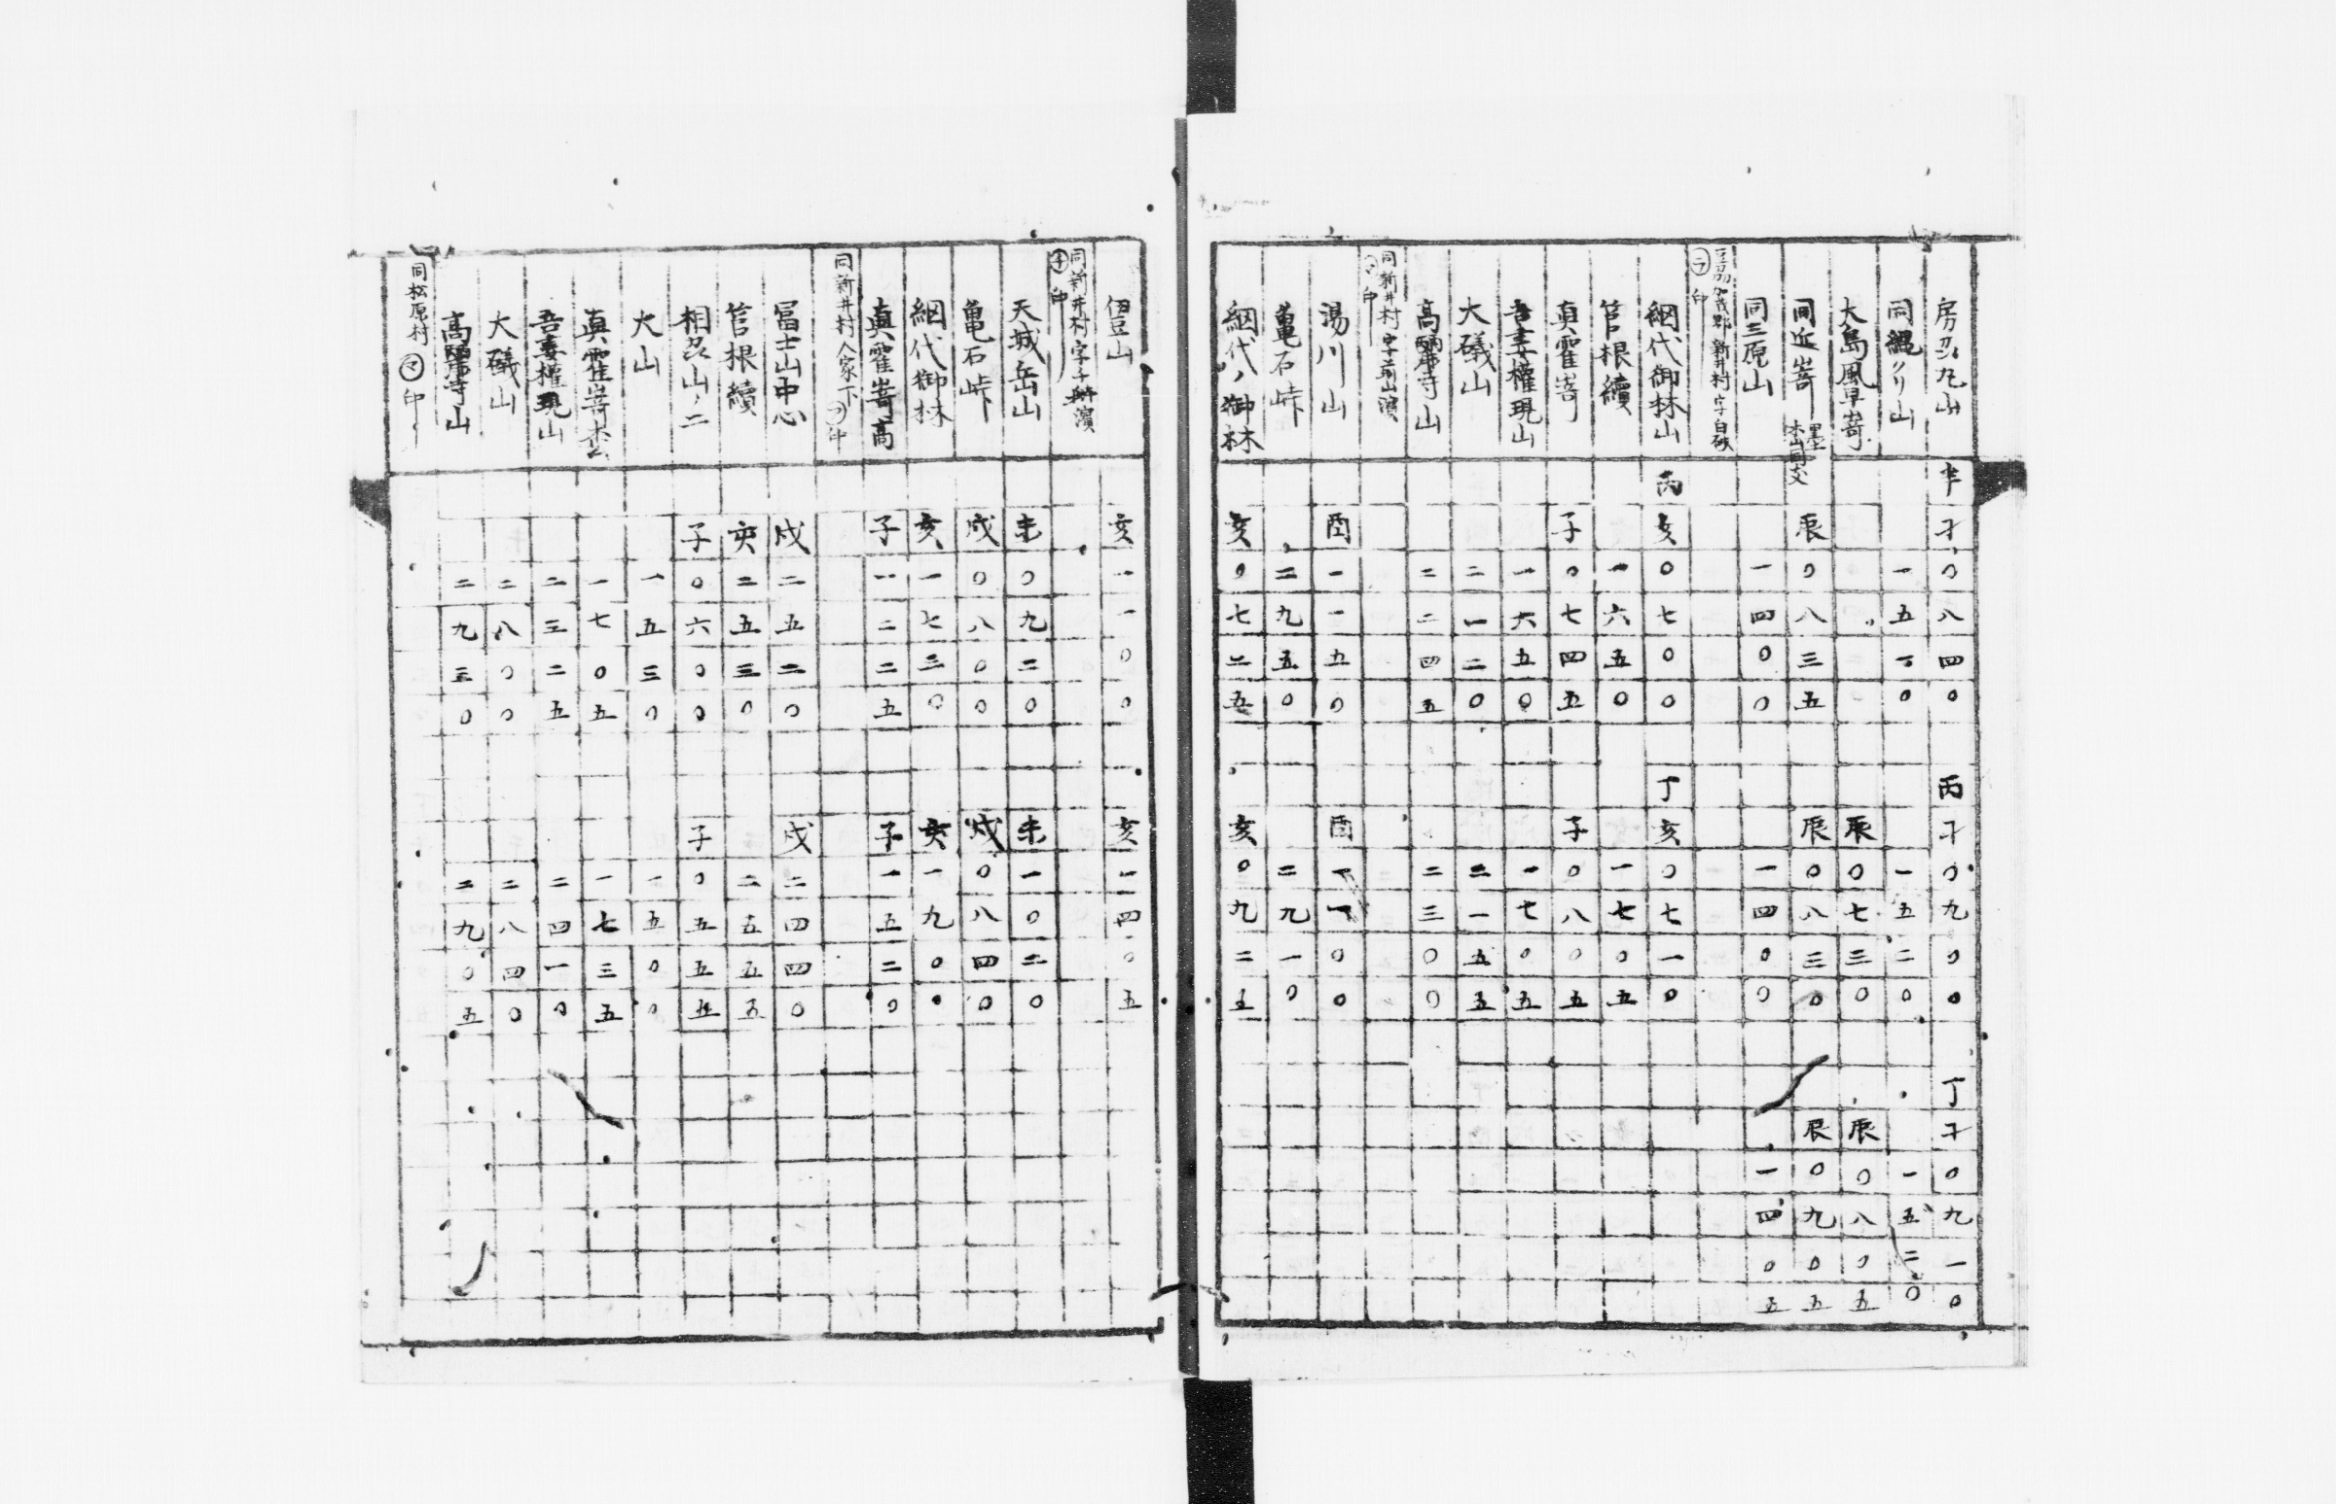 房刕丸山 半 子 〇 八 四 〇 丙 子 〇 九 〇 〇 丁 子 〇 九 一 〇
同鋸クリ山 一 五 一 〇 一 五 二 〇 一 五 二 〇
大島風早嵜 辰 〇 七 三 〇 辰 〇 八 〇 五
同 嵜 辰 〇 八 三 五 辰 〇 八 三 〇 辰 〇 九 〇 五
同三原山 一 四 〇 〇 一 四 〇 〇 一 四 〇 五
加茂郡新井村字白
㋶印
網代御林山 丙 亥 〇 七 〇 〇 丁 亥 〇 七 一 〇
筥根續 一 六 五 〇 一 七 〇 五
真霍嵜 子 〇 七 四 五 子 〇 八 〇 五
吾妻權現山 一 六 五 〇 一 七 〇 五
大礒山 二 一 二 〇 二 一 五 五
高麗寺山 二 二 四 五 二 三 〇 〇
同新井村字前山濱
印
湯川山 酉 一 一 五 〇 酉 一 一 〇 〇
亀石峠 二 九 五 〇 二 九 一 〇
網代ノ御林 亥 〇 七 二 五 亥 〇 九 二 五
伊豆山 亥 一 一 〇 〇 亥 二 四 〇 五
同新井村字 濱
印
天城岳山 未 〇 九 二 〇 未 一 〇 二 〇
亀石峠 戌 〇 八 〇 〇 戌 〇 八 四 〇
網代御林 亥 一 七 三 〇 亥 一 九 〇 〇
真霍嵜高 子 一 二 二 五 子 一 五 二 〇
同新井村人家下 印
冨士山中心 戌 二 五 二 〇 戌 二 四 四 〇
筥根續 亥 二 五 三 〇 二 五 五 五
相刕山ノ二 子 〇 六 〇 〇 子 〇 五 五 五
大山 一 五 三 〇 一 五 〇 〇
真霍嵜 一 七 〇 五 一 七 三 五
吾妻權現山 二 三 二 五 二 四 一 〇
大礒山 二 八 〇 〇 二 八 四 〇
高麗寺山 二 九 三 〇 二 九 〇 五
同松原村 ㋮印